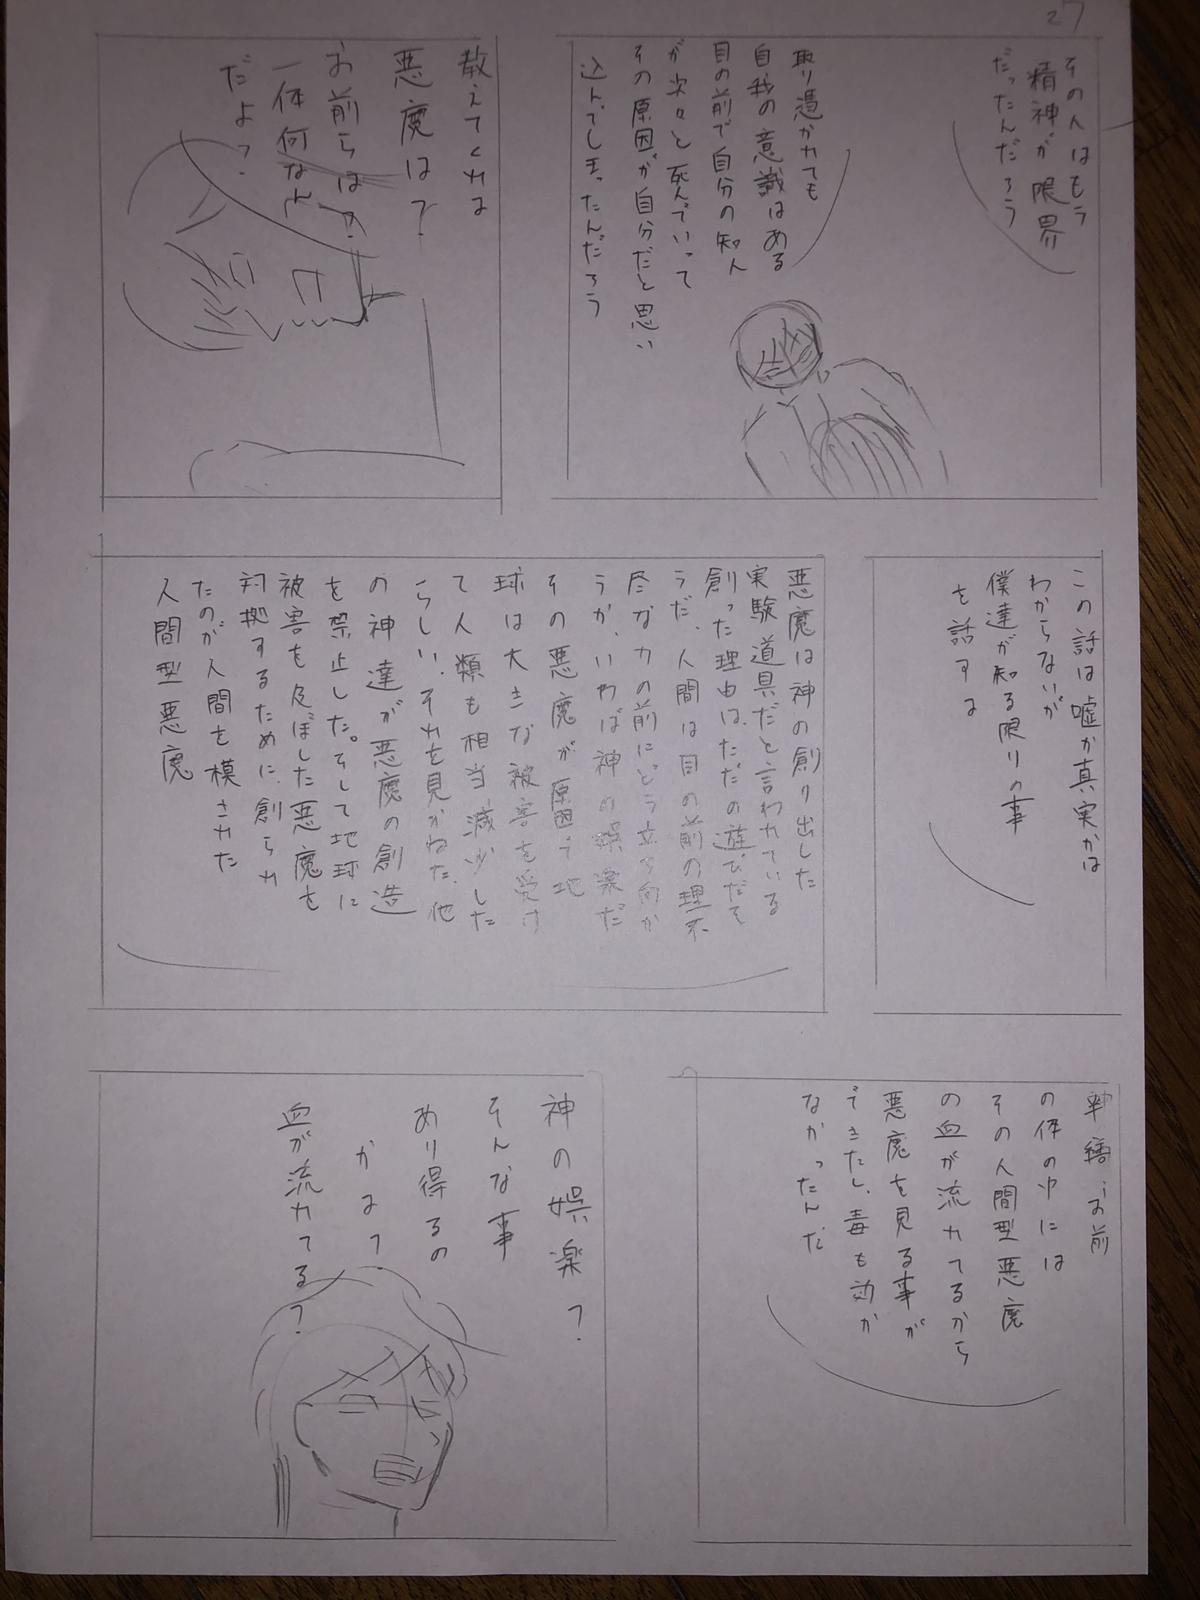 27
その人はもう
精神が限界
だったんだろう
取り憑かれても
自我の意識はある
目の前で自分の知人
が次々と死んでいって
その原因が自分だと思い
込んでしまったんだろう
教えてくれよ
悪魔は?
お前らは?
一体何なん
だよ?
この話は嘘か真実かは
わからないが
僕達が知る限りの事
を話すよ
悪魔は神の創り出した
実験道具だと言われている
創った理由は、ただの遊びだそ
うだ、人間は目の前の理不
尽な力の前にどう立ち向か
うか、いわば神の娯楽だ
その悪魔が原因で地
球は大きな被害を受け
て人類も相当減少した
らしい、それを見かねた、他
の神達が悪魔の創造
を禁止した。そして地球に
被害を及ぼした悪魔を
対拠するために、創られ
たのが人間を模された
人間型悪魔
お前
の体の中には
その人間型悪魔
の血が流れてるから
悪魔を見る事が
できたし、毒も効か
なかったんだ
神の娯楽?
そんな事
あり得るの
かよ?
血が流れてる?